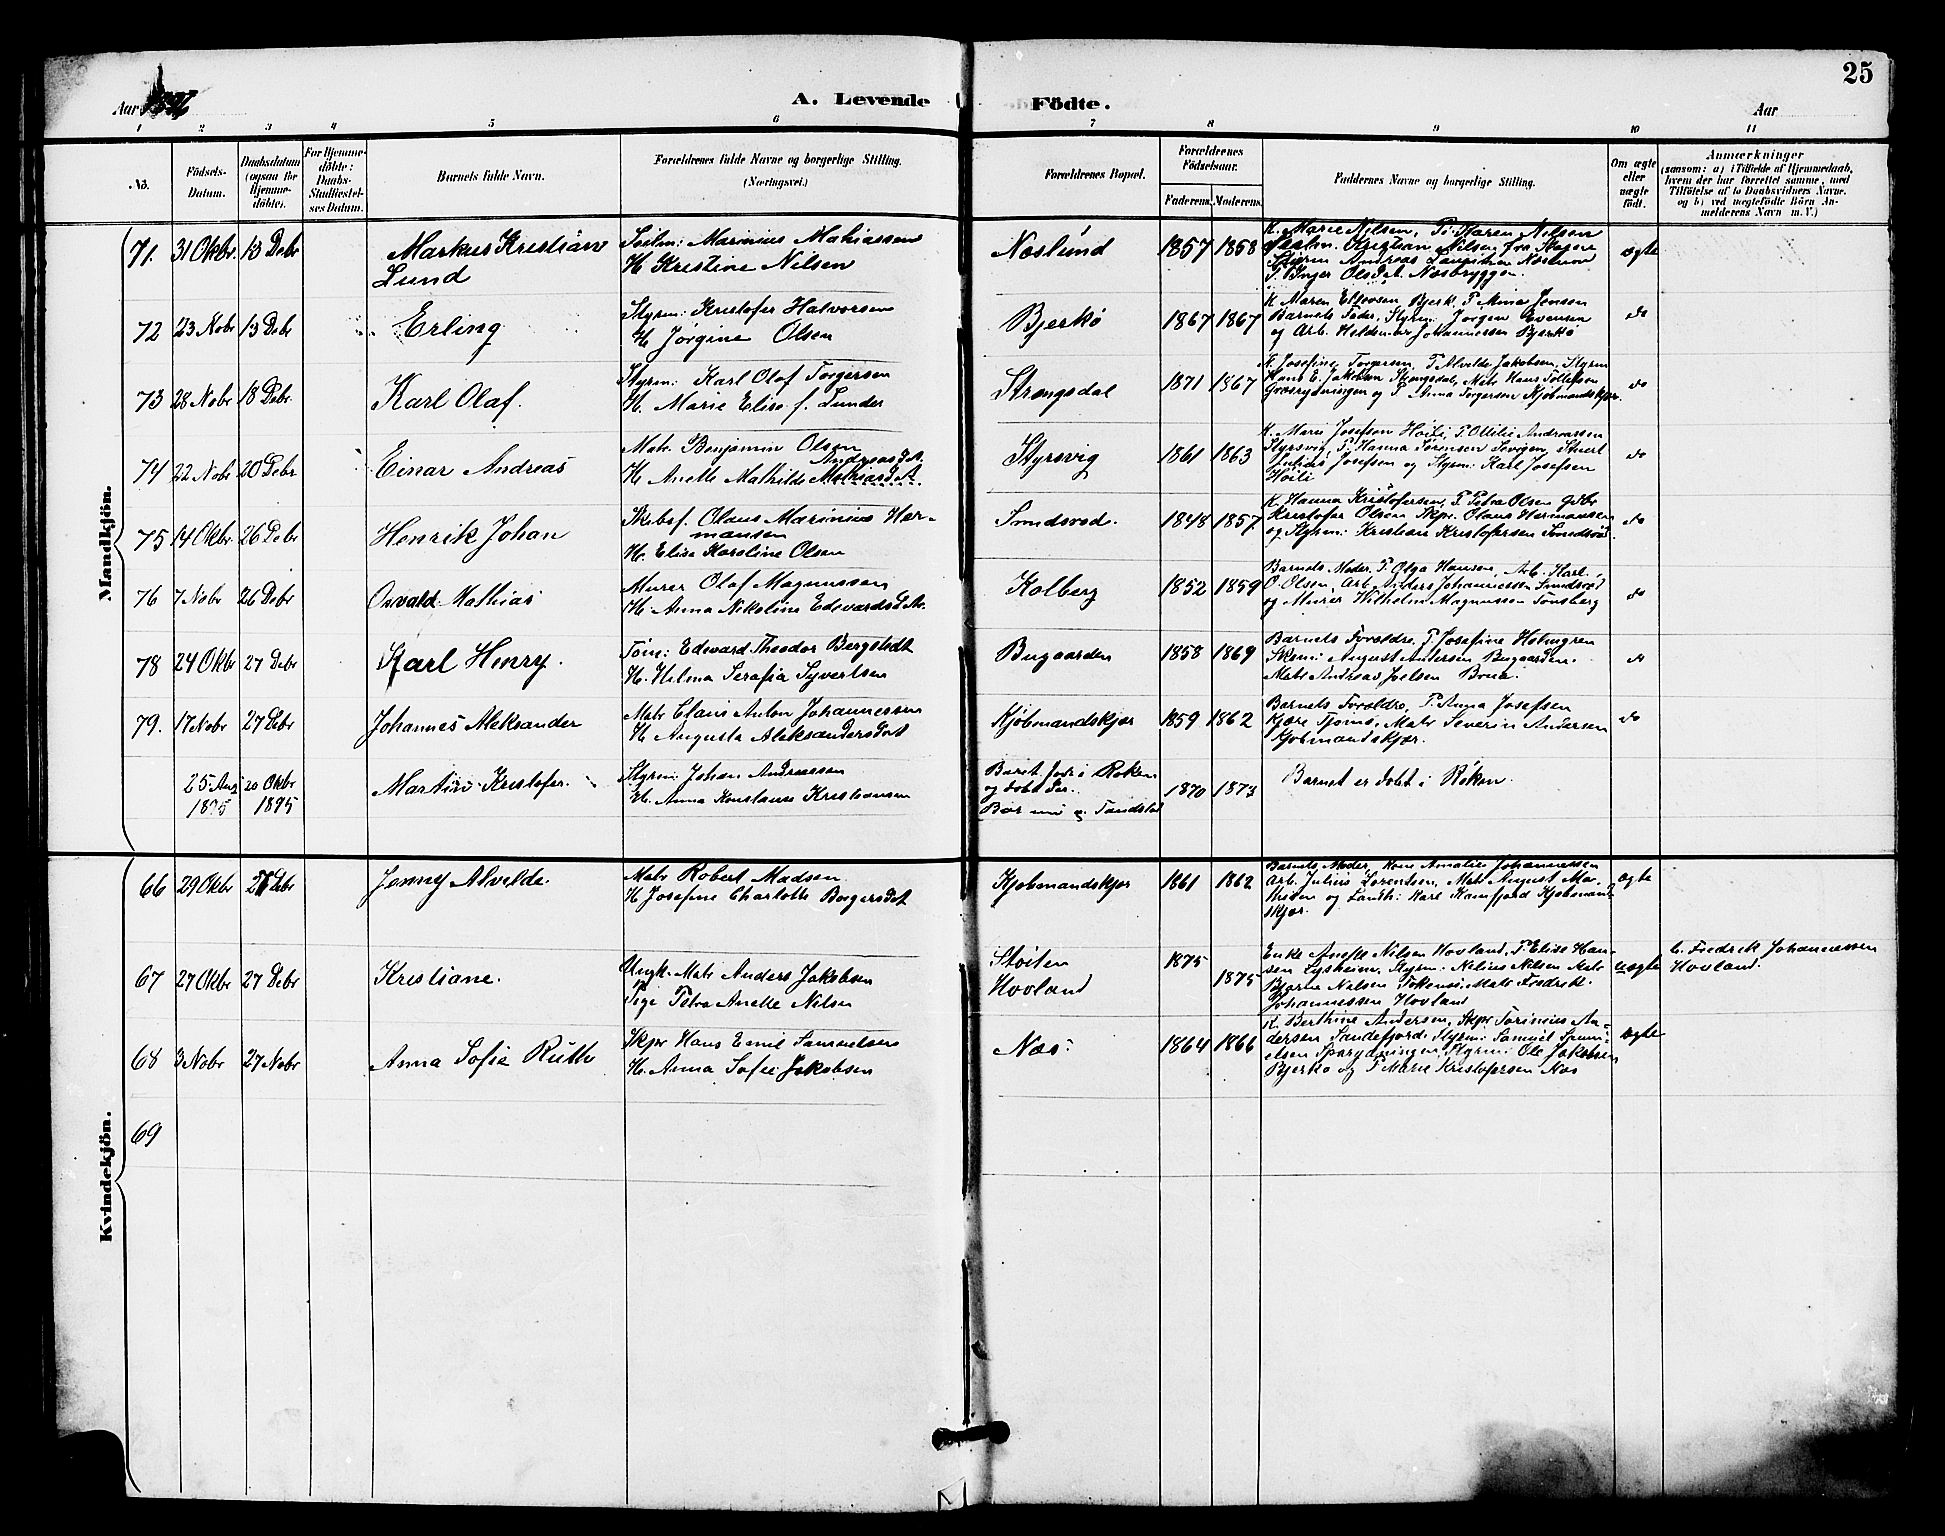 25
Aar 1896 A. Levende Födte. Aar
1 2 3 4 5 6 7 8 9 10 11
No.
Födsels-Datum.
Daabsdatum (ogsaa for Hjemme-döbte).
For Hjemme-döbte: Daabs-Stadfæstel-ses Datum.
Barnets fulde Navn.
Forældrenes fulde Navne og borgerlige Stilling. (Næringsvei.)
Forældrenes Bopæl.
Forældrenes Födselsaar.
Faderens. Moderens.
Faddernes Navne og borgerlige Stilling.
Om ægte eller uægte födt.
Anmærkninger
(saasom: a) i Tilfælde af Hjemmedaab, hvem der har forrettet samme, med Tilföielse af to Daabsvidners Navne. og b) ved uægtefödte Börn An-melderens Navn m. V.)
Mandkjön.
71. 31 Oktbr. 13 Debr Markus Kristian Lund
Marinius Mathiassen
H. Kristine Nilsen
Næslund 1857 1858
K. Marie Nilsen, P. Karen Nilsen
Kristian Nilsen fra
Andreas
P. Inger Olsdat. Næsbryggen.
ægte
72 23 Nobr 13 Debr Erling
Styrm: Kristofer Halvorsen
H. Jørgine Olsen
Bjerkö 1867 1867
K. Maren Ellevsen, Bjerk. P. Mina Jensen
Barnets Fader, Styrm: Jørgen Evensen
og Arb. Heldemar Johannessen Bjerkö
do
73 28 Nobr 18 Debr Karl Olaf.
Styrm: Karl Olaf Torgersen
H. Marie Elise f. Lunder
Strengsdal 1871 1867
K. Josefine Torgersen, P. Alvilde Jakobsen, Styrm
Hans E. Jakobsen Strengsdal, Matr Hans Tollefsen
og P. Anna Torgersen Kjøbmandskjær.
do
74 22 Nobr 20 Debr Einar Andreas
Matr. Benjamin Olsen
Andreasdat.
H. Anette Mathilde Mathiasdat.
Styrsvig 1861 1863
K. Marie Josefsen Høili, P. Ottilie Andreassen
Styrsvig, P. Hanna Sørensen
Josefsen og Styrm: Karl Josefsen
Høili
do
75 14 Oktbr. 26 Debr Henrik Johan
Skibsf. Olaus Marinius Her-
mansen
H. Elise Karoline Olsen
Smidsrød. 1848 1857
K. Hanna Kristofersen, P. Petra Olsen Gdbr
Kristofer Olsen Skpr. Olaus Hermansen
og Styrm: Kristian Kristofersen Smidsrød.
do
76 7 Nobr 26 Debr Osvald Mathias
Murer Olaf Magnussen
H. Anna Nikoline Edvardsdat.
Kolberg 1852 1859
Barnets Moder, P. Olga Hansen, Arb. Karl
O. Olsen, Arb. Anders Johannessen Smidsrød
og Murer Wilhelm Magnussen Tønsberg
do
78 24 Oktbr 27 Debr Karl Henry.
Tøm: Edevard Theodor Bergstedt
H. Hilma Serafia Syvertsen
Bugaarden 1858 1869
Barnets Forældre, P. Josefine Holmgren
August Andersen Bugaarden.
Matr Andreas Joelsen Brua.
do
79. 17 Nobr 27 Debr Johannes Aleksander
Matr Claus Anton Johannessen
H. Augusta Aleksandersdat
Kjøbmandskjær 1859 1862
Barnets Forældre, P. Anna Josefsen
Kjære Tjømø, Matr Severin Andersen
Kjøbmandskjær.
do
25 Aug 1895 20 Oktbr 1895 Martin Kristofer.
Styrm. Johan Andreassen
H. Anna Konstanse Kristiansen
Barnet født i Røken
og døbt der.
Bor nu
1870 1873
Barnet er døbt i Røken.
Kvindekjön.
66 29 Oktbr 26 Debr Jenny Alvilde.
Matr Robert Madsen
H. Josefine Charlotte Borgersdat
Kjøbmandskjær 1861 1862
Barnets Moder, Kone Amalie Johannessen
Arb. Julius Lorentsen, Matr August Ma-
thisen og Landh: Karl Kamfjord Kjøbmand-
skjær.
ægte
67 27 Oktbr 27 Debr Kristiane.
Ungk. Matr Anders Jakobsen
Pige Petra Anette Nilsen
Støiten
Hovland
1875 1875
Enke Anette Nilsen Hovland, P. Elise Han-
sen Lysheim, Styrm. Nilius Nilsen Matr
Bjarne Nilsen Matr Fredrik
Johannessen Hovland
uægte
Fredrik Johannessen
Hovland.
68 3 Nobr 27 Nobr Anna Sofie Ruth
Skpr Hans Emil Samuelsen
H. Anna Sofie Jakobsen
Næs: 1864 1866
K. Berthine Andersen, Skpr Torinius An-
dersen Sandefjord, Styrm: Samuel Samu-
elsen Sparydningen, Styrm: Ole Jakobsen
Bjerkø og P. Marie Kristofersen Næs
ægte
69